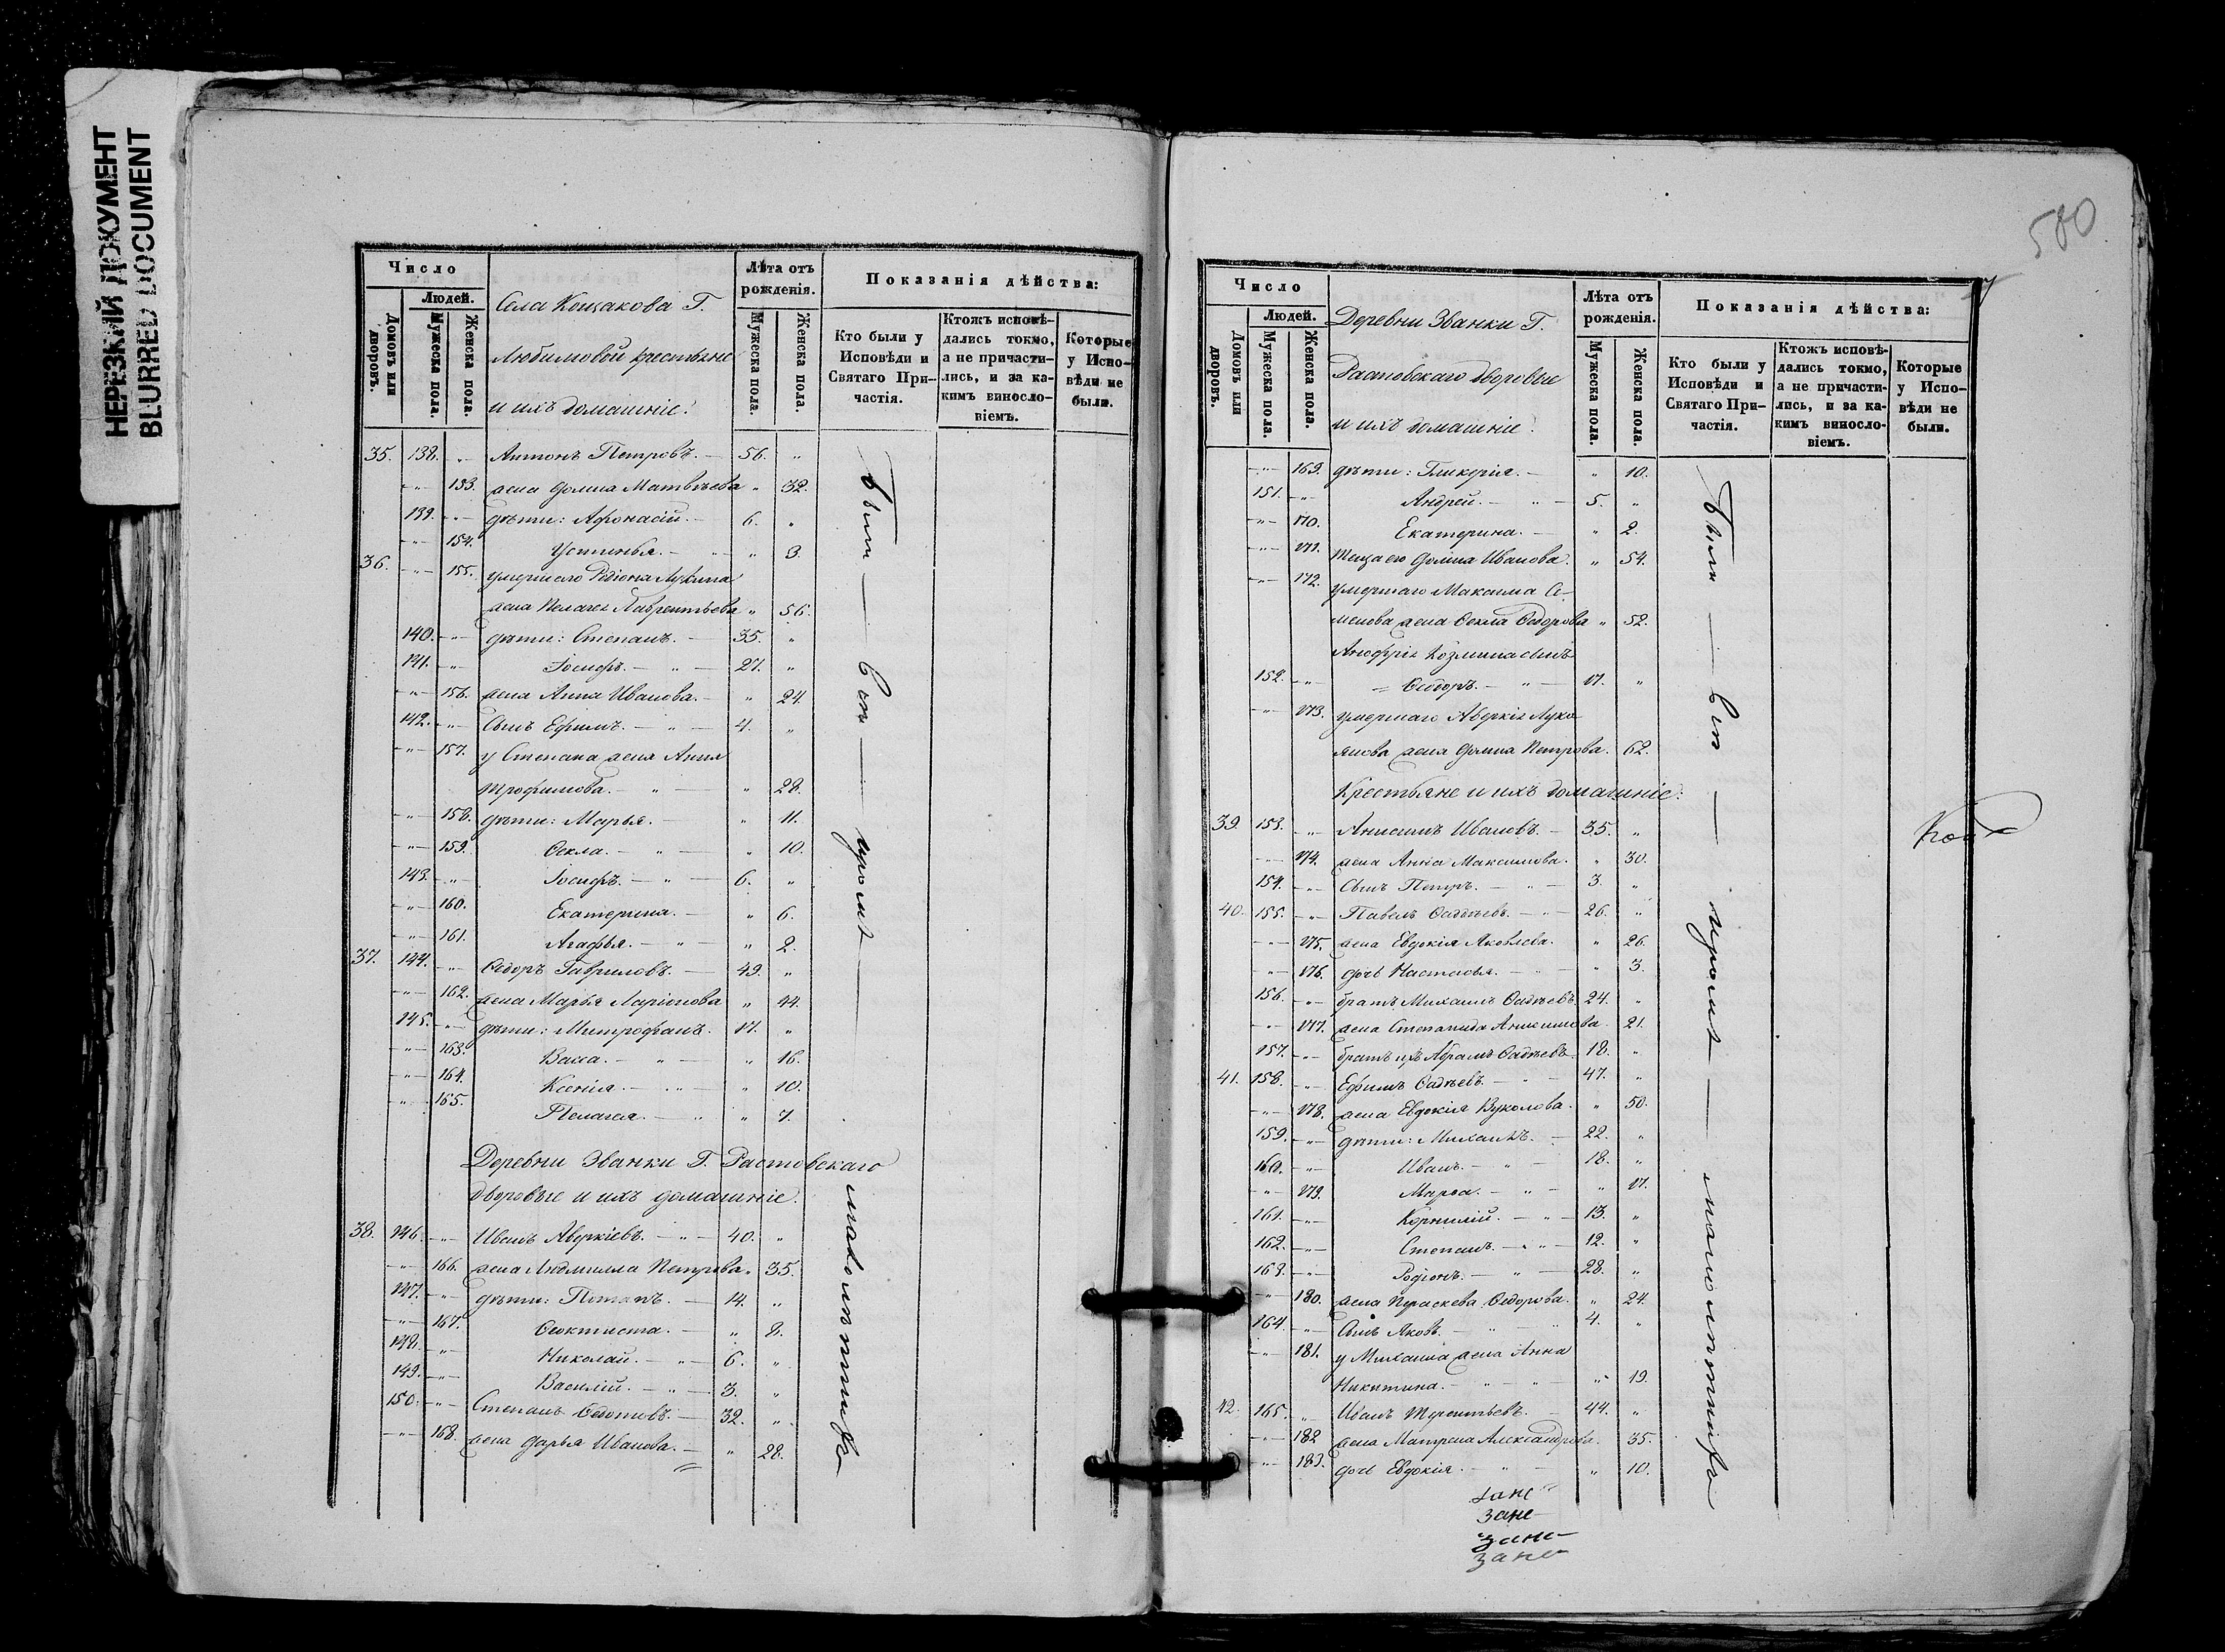 НЕРЕЗКИЙ ДОКУМЕНТ
BLURRED DOCUMENT
Число
Людей.
Домовъ или дворовъ.
Мужеска пола.
Женска пола.
Села Кощакова Г.
Любимовой крестьяне
и ихъ домашніе:
Лѣта отъ рожденія.
Мужеска пола.
Женска пола.
Показанія дѣйства:
Кто были у Исповѣди и Святаго Причастія.
Ктожъ исповѣдались токмо, а не причастились, и за какимъ винословіемъ.
Которые у Исповѣди не были.
35. 138. -„- Антонъ Петровъ. - 56. „
-„- 153. жена Домна Матвѣева „ 32.
139. -„- дѣти: Афонасій. - 6. „
-„- 154. Устинья. - „ 3.
36. -„- 155. умершаго Родіона Лукина
жена Пелагея Лаврентьева „ 56.
140. -„- дѣти: Степанъ. - 35. „
141. -„- Іосифъ. - „ - 27. „
-„- 156. жена Анна Иванова. - „ 24.
142. -„- Сынъ Ефимъ. - „ - 4. „
-„- 157. у Степана жена Анна
Трофимова. - „ - „ 28.
-„- 158. дѣти: Марья. - „ 11.
-„- 159. Ѳекла. - „ - „ 10.
143. -„- Іосифъ. - „ - 6. „
-„- 160. Екатерина. - „ 6.
-„- 161. Агафья. - „ - „ 2.
37. 144. -„- Ѳедоръ Гавриловъ. - 49. „
-„- 162. жена Марья Ларіонова „ 44.
145. -„- дѣти: Митрофанъ. 17. „
-„- 163. Васса. - „ - „ 16.
-„- 164. Ксенія. - „ - „ 10.
-„- 165. Пелагея. - „ „ 7.
Деревни Званки Г. Растовскаго
дворовые и ихъ домашніе.
38. 146. -„- Иванъ Аверкіевъ. - „ - 40. „
-„- 166. жена Людмилла Петрова „ 35.
147. -„- дѣти: Потапъ. - 14. „
-„- 167. Ѳеоктиста. - „ 8.
148. -„- Николай. - „ - 6. „
149. -„- Василій. - „ - 3. „
150. -„- Степанъ Ѳедотовъ. - 32. „
-„- 168. жена Дарья Иванова. - „ 28.
Были — вси — кромѣ — малолѣтнихъ
580
Число
Людей.
Домовъ или дворовъ.
Мужеска пола.
Женска пола.
Деревни Званки Г.
Растовскаго дворовые
и ихъ домашніе.
Лѣта отъ рожденія.
Мужеска пола.
Женска пола.
Показанія дѣйства:
Кто были у Исповѣди и Святаго Причастія.
Ктожъ исповѣдались токмо, а не причастились, и за какимъ винословіемъ.
Которые у Исповѣди не были.
-„- 169. дѣти: Гликерія. - „ 10.
151. -„- Андрей. - „ - 5. „
-„- 170. Екатерина. - „ 2.
-„- 171. Теща его Домна Иванова. „ 54.
-„- 172. умершаго Максима Се-
менова жена Ѳекла Ѳедорова „ 52.
Анофрія Козмина сынъ
152. -„- Ѳедоръ. - „ - 17. „
-„- 173. умершаго Аверкія Лукь-
янова жена Домна Петрова. 62.
Крестьяне и ихъ домашніе:
39. 153. -„- Анисимъ Ивановъ. - 35. „
-„- 174. жена Анна Максимова. „ 30.
154. -„- Сынъ Петръ. - „ - 3. „
40. 155. -„- Павелъ Ѳаддѣевъ. - „ - 26. „
-„- 175. жена Евдокія Яковлева. „ 26.
-„- 176. дочь Настасья. - „ - „ 3.
156. -„- братъ Михаилъ Ѳадѣевъ. 24. „
-„- 177. жена Степанида Анисимова. 21.
157. -„- братъ ихъ Абрамъ Ѳадѣевъ. 18. „
41. 158. -„- Ефимъ Ѳадѣевъ. - „ - 47. „
-„- 178. жена Евдокія Вуколова. „ 50.
159. -„- дѣти: Михаилъ. - 22. „
160. -„- Иванъ. - „ - 18. „
-„- 179. Марѳа. - „ - „ 17.
161. -„- Корнилій. - „ - 13. „
162. -„- Степанъ. - „ - 12. „
163. -„- Родіонъ. - „ - 28. „
-„- 180. жена Праскева Ѳедорова. „ 24.
164. -„- Сынъ Яковъ. - „ 4. „
-„- 181. у Михаила жена Анна
Никитина. - „ - „ - „ 19.
42. 165. -„- Иванъ Терентьевъ. 44. „
-„- 182. жена Матрена Александрова. 35.
-„- 183. дочь Евдокія. - „ - „ 10.
Были — вси — кромѣ — малолѣтнихъ
зане
зане
зане
зане